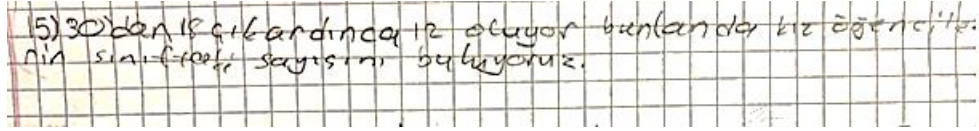 15) 30'dan 18 çıkardında 12 oluyor bunlanda kız öğencile-
nin sınıftaki sayısını buluyoruz.